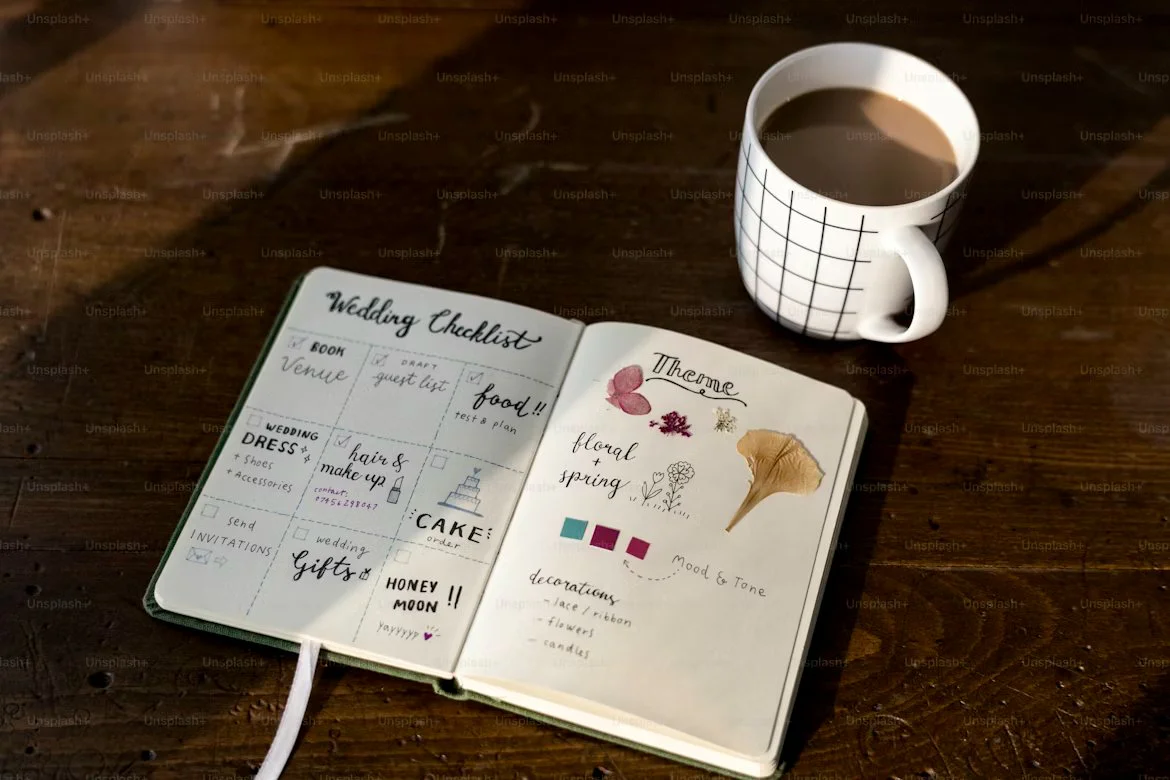 Wedding Checklist
BOOK
Venue
DRAFT
guest list
food!!
test & plan
WEDDING
DRESS
+ Shoes
+ Accessories
hair &
make up
contact:
07456298047
CAKE
order
send
INVITATIONS
wedding
Gifts
HONEY
MOON !!
yayyyyp
Theme
floral
+
spring
Mood & Tone
decorations
- lace / ribbon
- flowers
- candles
Unsplash+